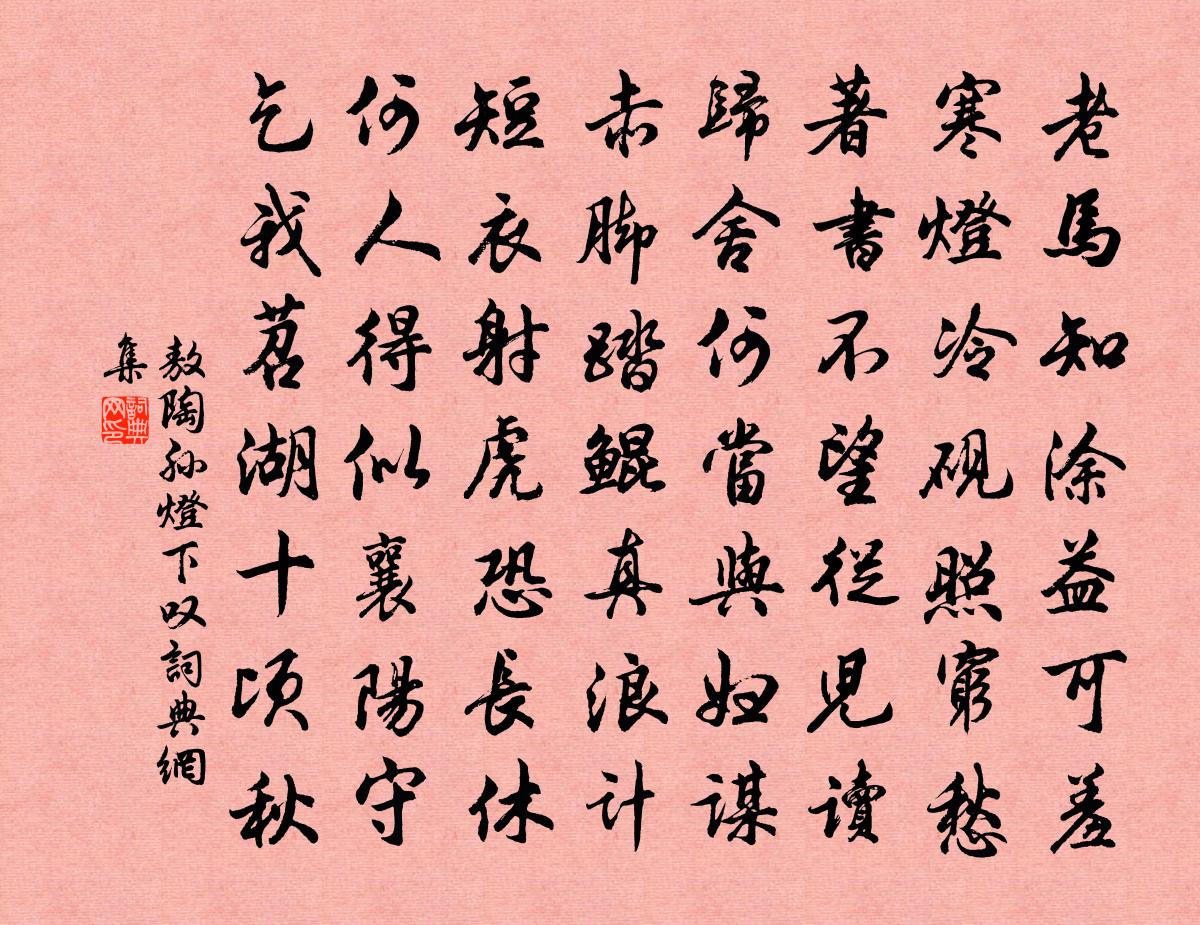 老馬知涂益可羞
寒燈冷硯照窮愁
著書不望從兒讀
歸舍何當與婦謀
赤腳踏鯤真浪計
短衣射虎恐長休
何人得似襄陽守
乞我苕湖十頃秋
敖陶孙燈下叹詞典網
集
詞典网印